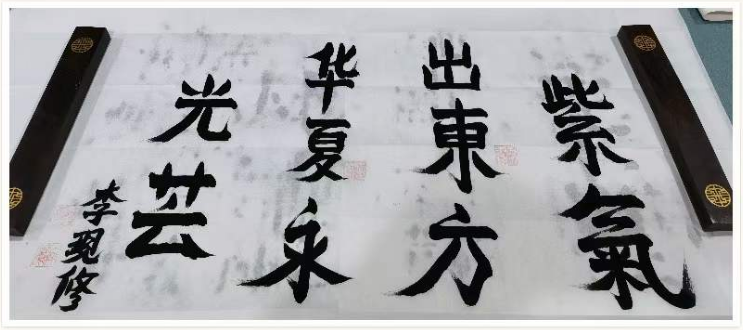 紫氣
出東方
华夏永
光芸
李觐修